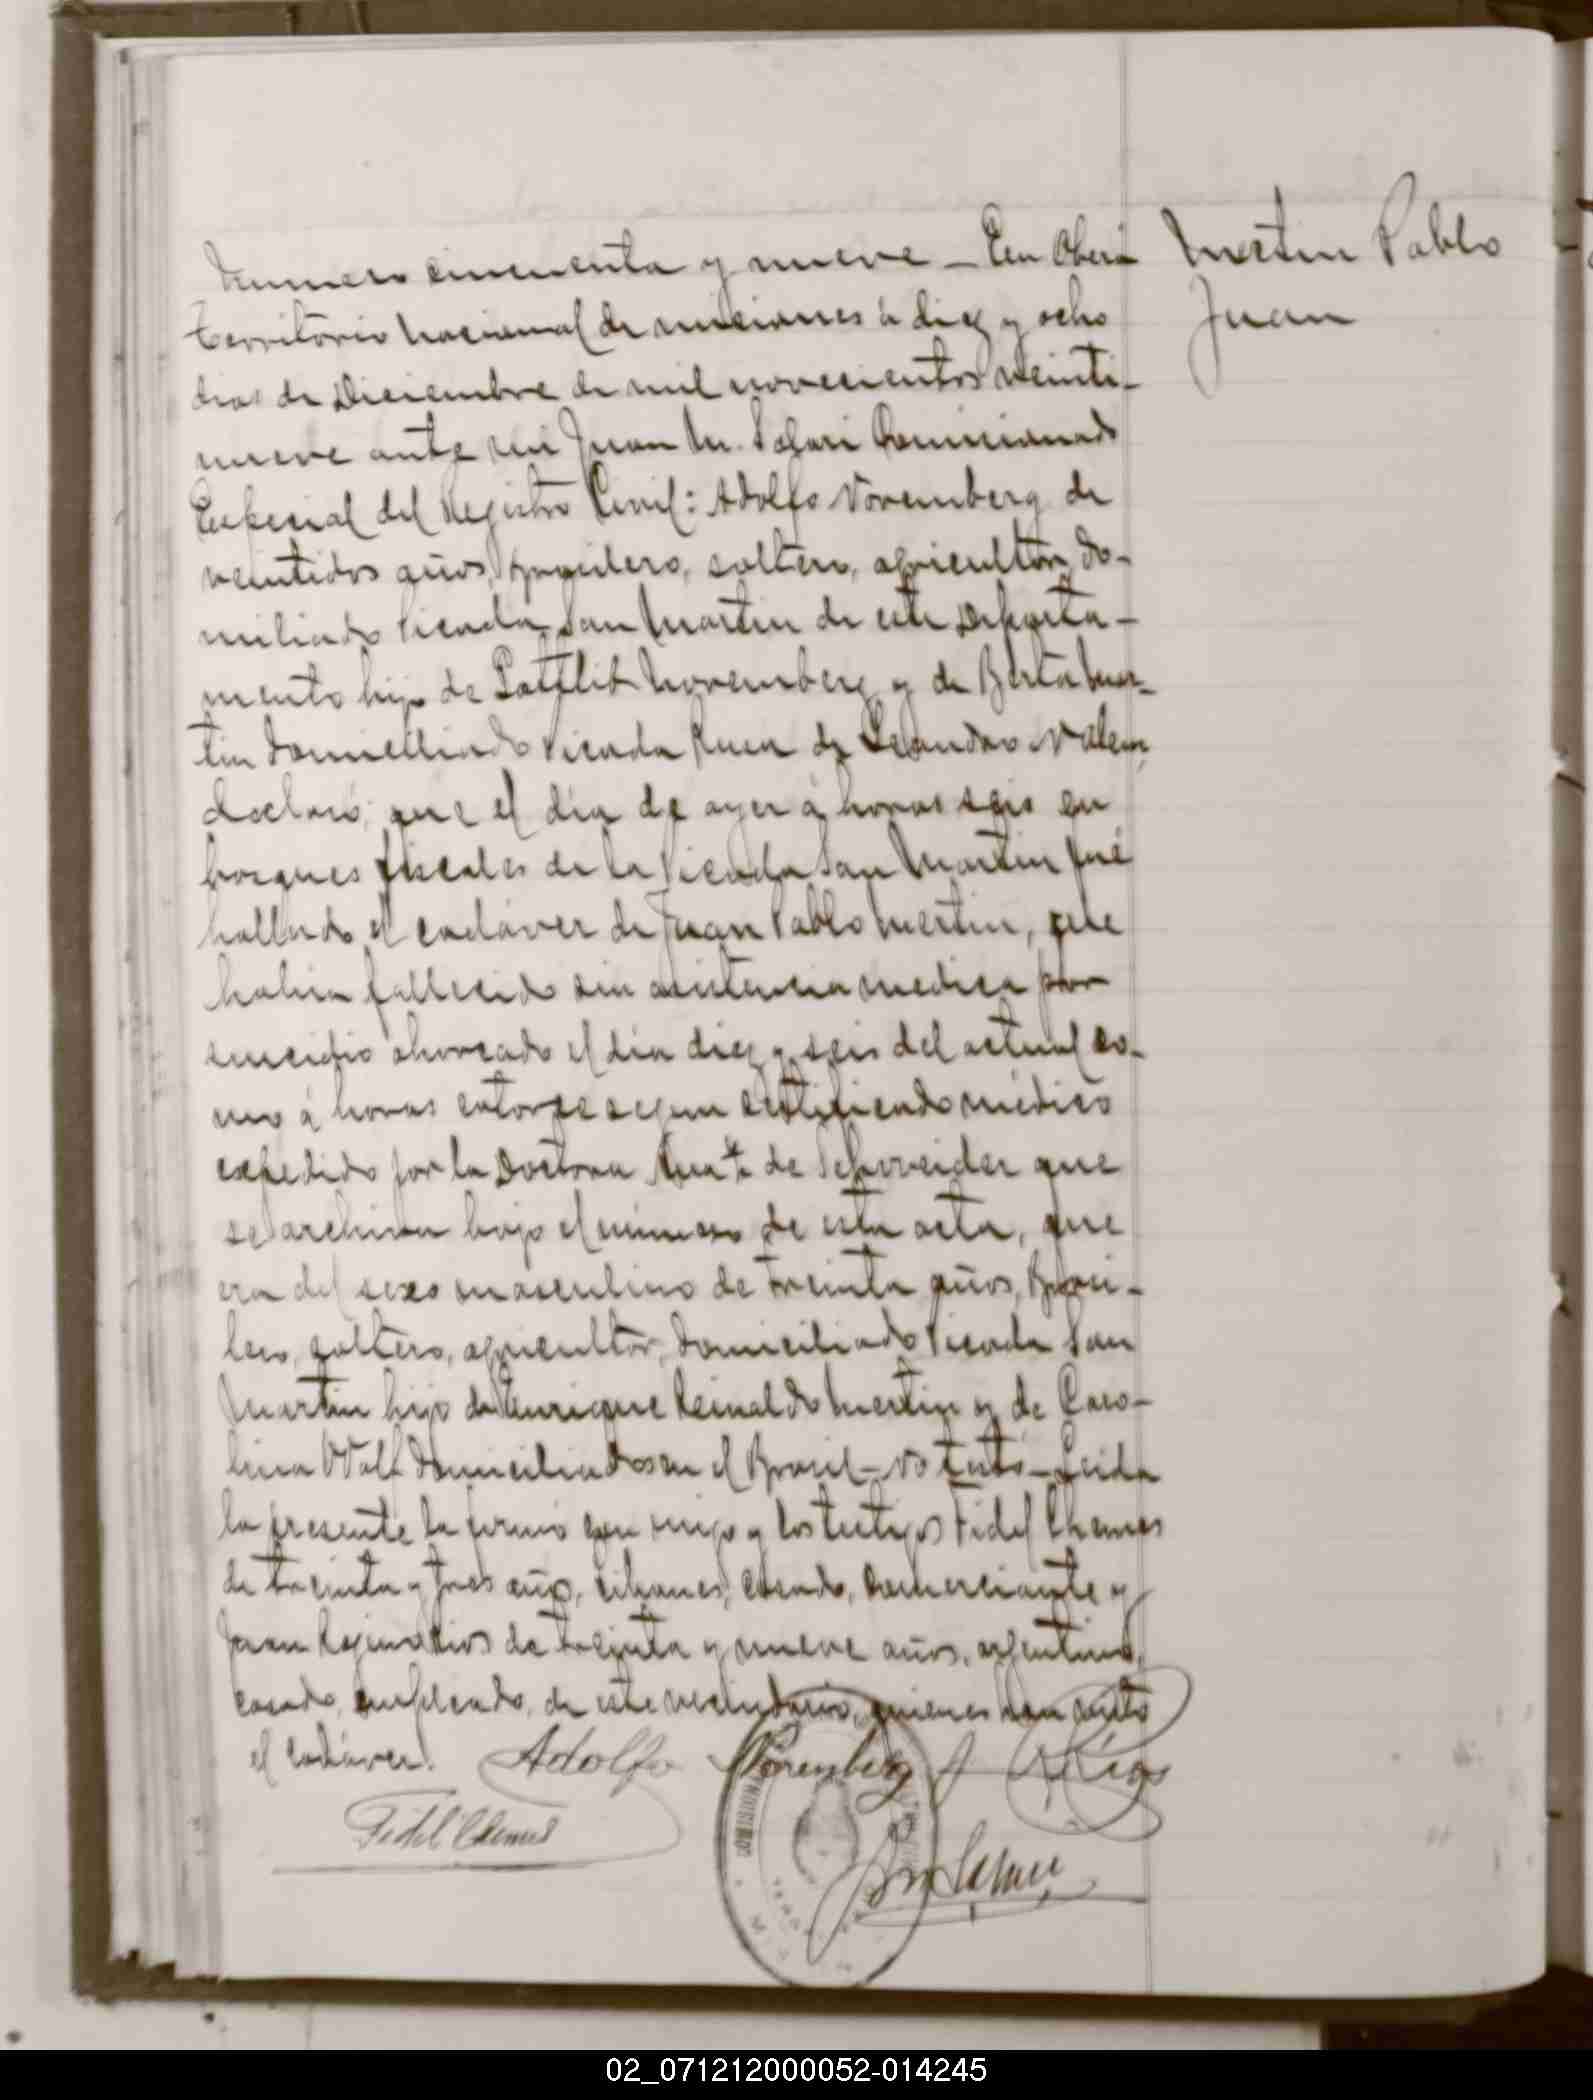 Numero cincuenta y nueve – En Oberá
territorio nacional de misiones á diez y ocho
dias de Diciembre de mil novecientos veinti-
nueve ante mi Juan M. Comisionado
Especial del Registro Civil: Adolfo Noremberg de
veintidos años, brasilero, soltero, agricultor, do-
miliado Picada San Martin de este Departa-
mento hijo de Noremberg y de Berta Mer-
tin domicilliado Picada de Leandro N Alem,
declaró; que el día de ayer á horas seis en
bosques fiscales de la Picada San Martin fué
hallado el cadáver de Juan Pablo Mertin, que
habia fallecido sin asistencia medica por
suicidio ahorcado el día diez y seis del actual co-
mo á horas catorce segun certificado médico
expedido por la Doctora de Schneider que
se archiva bajo el número de esta acta, que
era del sexo masculino de treinta años, Brasi-
lero, soltero, agricultor, domiciliado Picada San
Martin hijo de Enrique Reinaldo Mertin y de Caro-
lina Wolf domiciliados en el Brasil – No testó – Leida
la presente la firmó con migo y los testigos Fidel Chemes
de treinta y tres año, libanes, casado, comerciante y
Juan Rios de treinta y nueve años, argentino,
casado, empleado, de este vecindario, quienes han visto
el cadáver. Adolfo Noremberg J R Rios
Fidel Chemes
Mertin Pablo
Juan
02_071212000052-014245